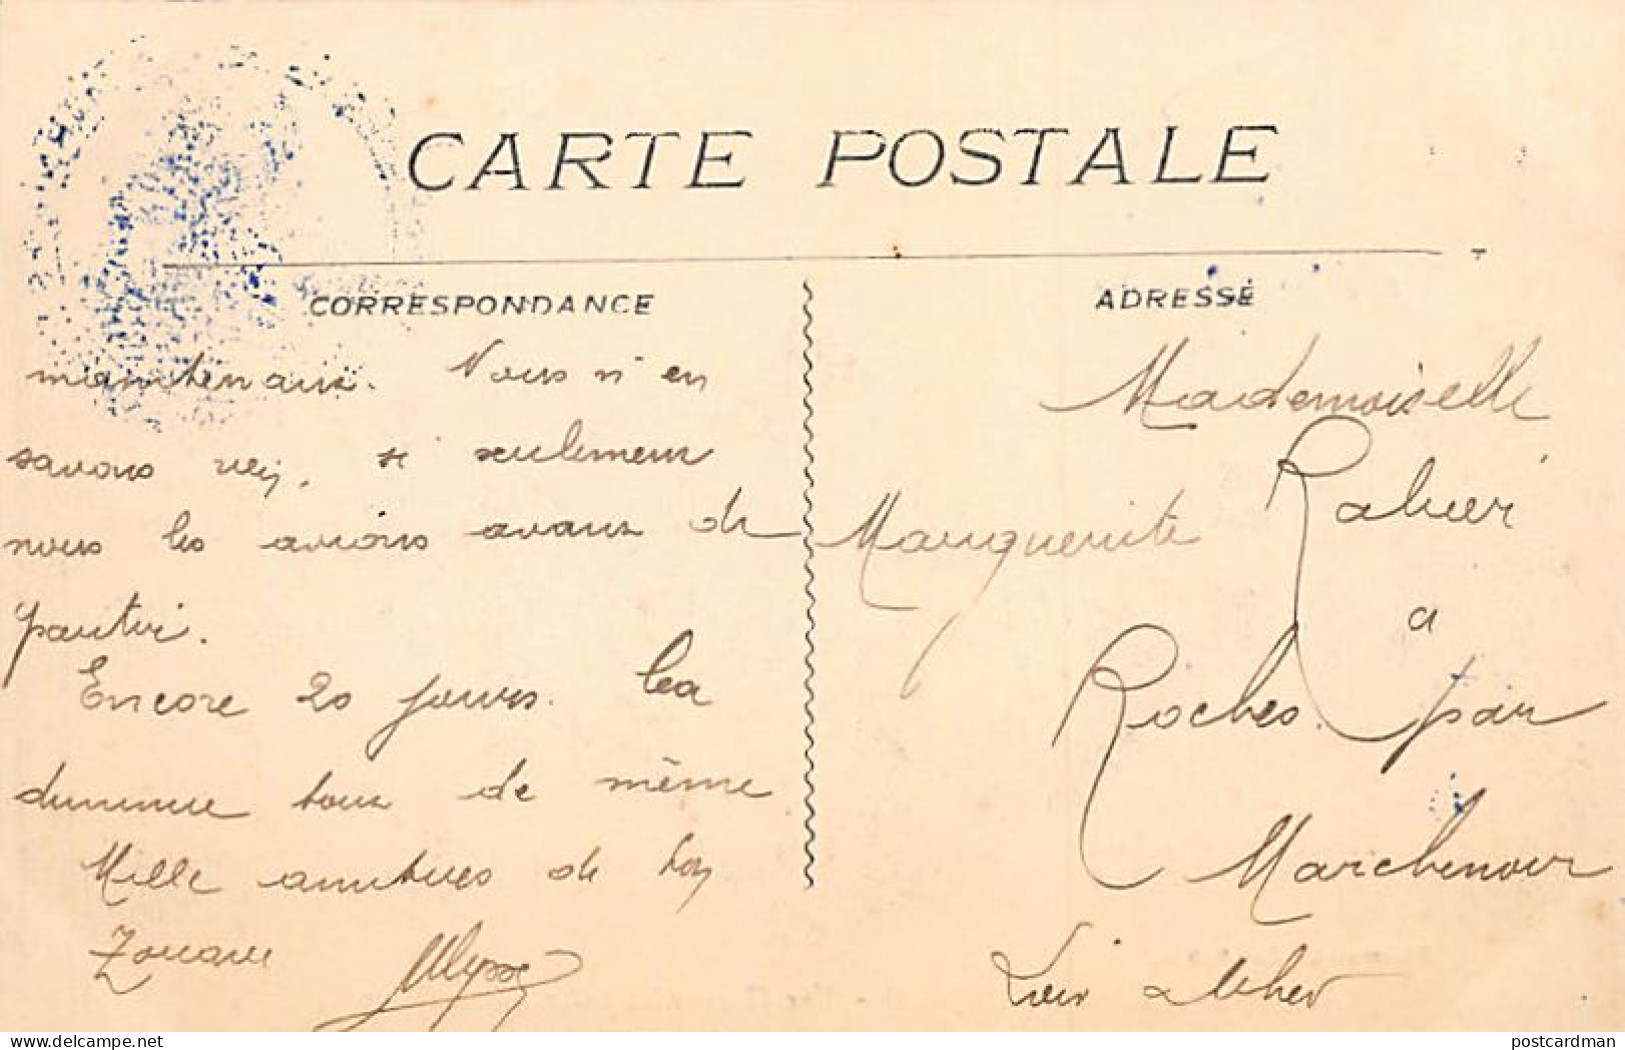 CARTE POSTALE
CORRESPONDANCE
maintenant. Nous n'en
savons rien, si seulement
nous les avions avant de
partir.
Encore 20 jours. Ça
diminue tout de même
Mille amitiés de ton
Zouave Ulysse
ADRESSE
Mademoiselle
Marguerite
à
Roches par
Marchenoir
Loir et Cher
delcampe.net
postcardman